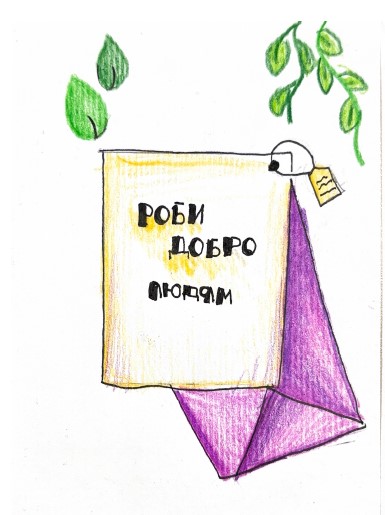 РОБИ
ДОБРО
ЛЮДЯМ